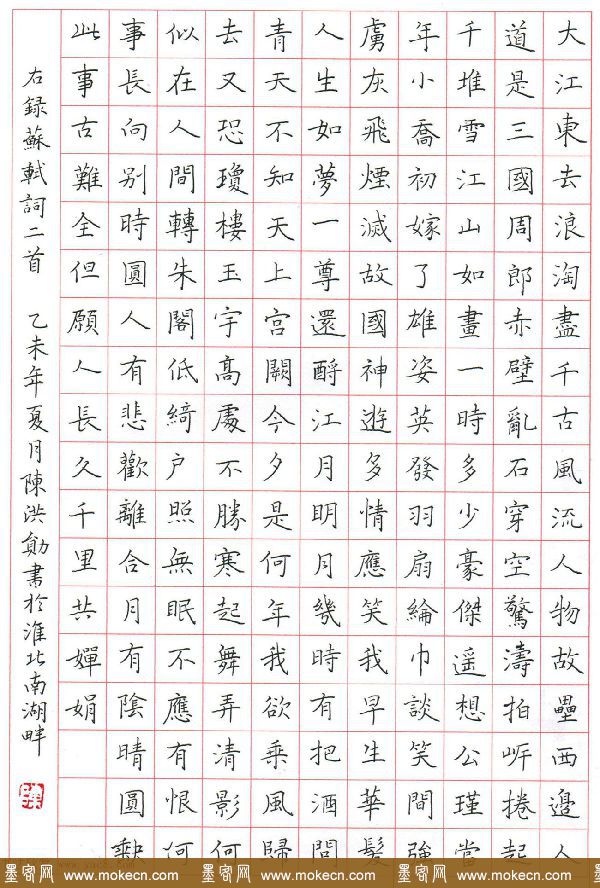 大江東去浪淘盡千古風流人物故壘西邊人
道是三國周郎赤壁亂石穿空驚濤拍岍捲起
千堆雪江山如畫一時多少豪傑遥想公瑾當
年小喬初嫁了雄姿英發羽扇綸巾談笑間強
虜灰飛煙滅故國神遊多情應笑我早生華髮
人生如夢一尊還酹江月明月幾時有把酒問
青天不知天上宮闕今夕是何年我欲乘風歸
去又恐瓊樓玉宇高處不勝寒起舞弄清影何
似在人間轉朱閣低綺戶照無眠不應有恨何
事長向别時圓人有悲歡離合月有陰晴圓缺
此事古難全但願人長久千里共嬋娟
右錄蘇軾詞二首 乙未年夏月陳洪勛書於淮北南湖畔
墨客网 www.mokecn.com 墨客网 www.mokecn.com 墨客网 www.mokecn.com